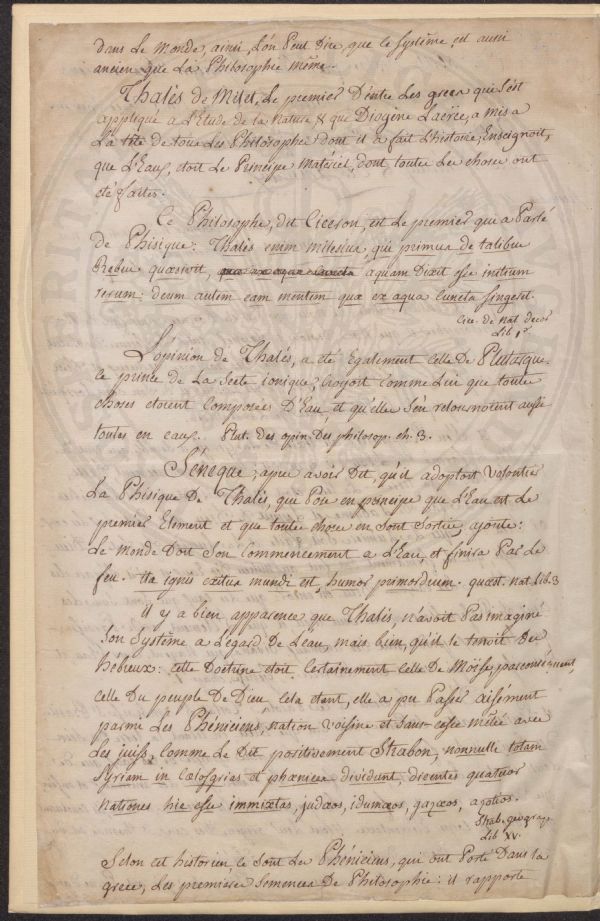 dans Le monde, ainsi, L'on Peut Dire, que le systême, est aussi
ancien que La Philosophie même.
Thalès de Milet, Le premier D'entre Les grecs qui s'est
appliqué a L'Etude de la Nature & que Diogène Laërce, a mis a
La tête de tous Les Philosophes dont il a fait L'histoire, Enseignoit,
que L'Eau, étoit Le Principe Matériel, dont toutes Les choses ont
été faites.
Ce Philosophe, dit Ciceron, est Le premier qui a Parlé
de Phisique: Thalès enim milesius, qui primus de talibus
Rebus quæsivit, aquam Dixit esse initium
rerum: deum autem eam mentem quæ ex aqua cuncta fingeret.
Cice. de nat deor
Lib 1r.
L'opinion de Thalès, a été Egalement celle De Plutarque.
ce prince de La Secte ionique, croyoit comme Lui que toutes
choses etoient Composées D'Eau, et qu'elles s'en retournoient aussi
toutes en eaux. Plut. Des opin. Des philosop. ch. 3.
Séneque, apres avoir Dit, qu'il adoptoit Volontiers
La Phisique De Thalès, qui Pose en principe que L'Eau est Le
premier Element et que toutes choses en Sont Sorties, ajoute:
Le monde Doit Son Commencement a L'Eau, et finira Par Le
feu. Ita ignis exitus mundi est, humor primordium. quæst. nat. Lib. 3
il y a bien apparence que Thalès, n'avoit Pas imaginé
Son Systême a L'égard De L'eau, mais bien, qu'il le tenoit Des
hébreux: cette Doctrine etoit Certainement Celle De Moïse, par conséquent,
celle Du peuple De Dieu. Cela étant, elle a pu Passer aisément
parmi Les Phéniciens, nation voisine et Sans-cesse mêlée avec
Les juifs, Comme Le Dit positivement Strabon, nonnulli totam
Syriam in cælosyrias et phœnices dividunt, dicentes quatuor
nationes hic esse immixtas, judæos, idumæos, gazæos, azotios.
Strab. géograp
Lib XV.
Selon cet historien ce sont Les Phéniciens, qui ont Porté Dans la
grece, Les premières Semences De Philosophie: il rapporte